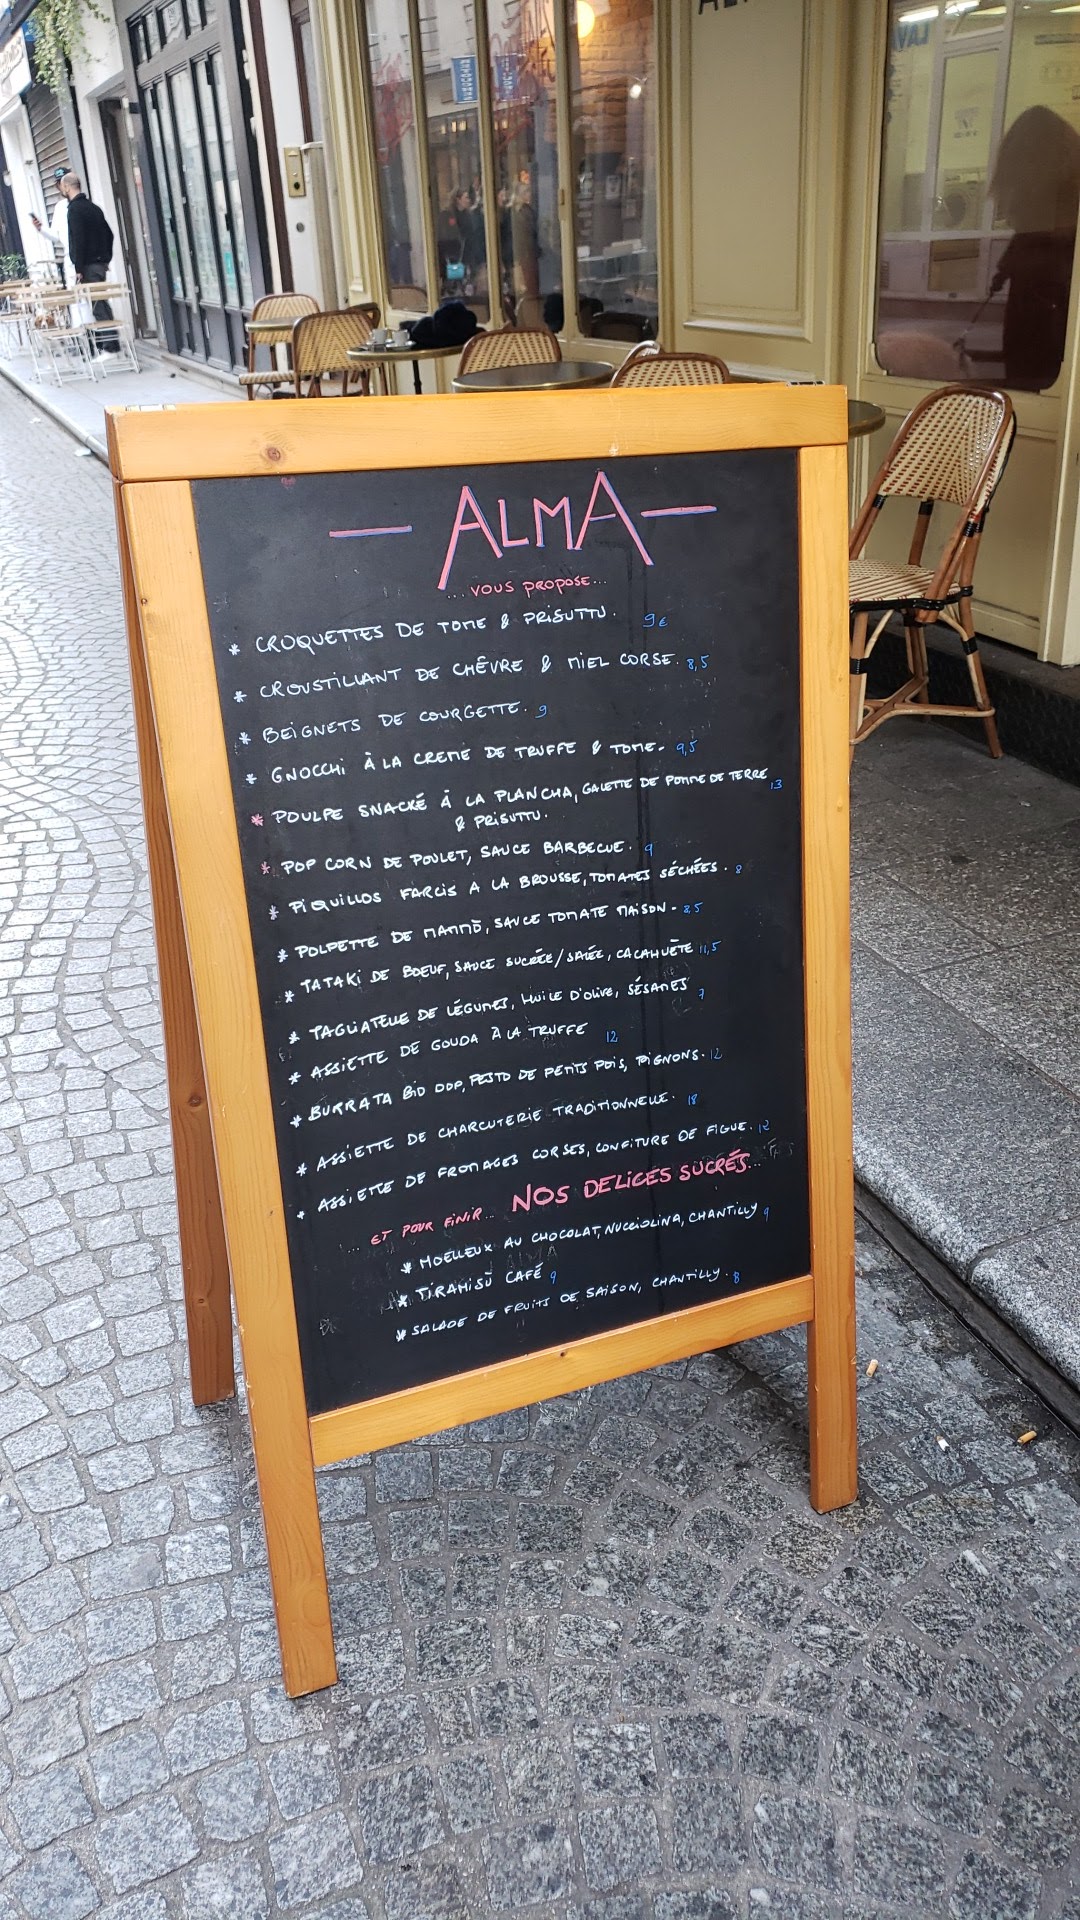 — ALMA —
... VOUS PROPOSE...
* CROQUETTES DE TOME & PRISUTTU. 9€
* CROUSTILLANT DE CHÊVRE & MIEL CORSE. 8,5
* BEIGNETS DE COURGETTE. 9
* GNOCCHI À LA CREME DE TRUFFE & TOME. 9,5
* POULPE SNACKÉ À LA PLANCHA, GALETTE DE POMME DE TERRE 13
& PRISUTTU.
* POP CORN DE POULET, SAUCE BARBECUE. 9
* PIQUILLOS FARCIS A LA BROUSSE, TOMATES SÉCHÉES. 8
* POLPETTE DE MAMMÔ, SAUCE TOMATE MAISON. 8,5
* TATAKI DE BOEUF, SAUCE SUCRÉE/SALÉE, CACAHUÈTE 11,5
* TAGLIATELLE DE LÉGUMES, HUILE D'OLIVE, SÉSAMES 7
* ASSIETTE DE GOUDA À LA TRUFFE 12
* BURRATA BIO DOP, PESTO DE PETITS POIS, PIGNONS. 12
* ASSIETTE DE CHARCUTERIE TRADITIONNELLE. 18
* ASSIETTE DE FROMAGES CORSES, CONFITURE DE FIGUE. 12
... ET POUR FINIR... NOS DELICES SUCRÉS...
* MOELLEUX AU CHOCOLAT, NUCCIOLINA, CHANTILLY 9
* TIRAMISÙ CAFÉ 9
* SALADE DE FRUITS DE SAISON, CHANTILLY. 8